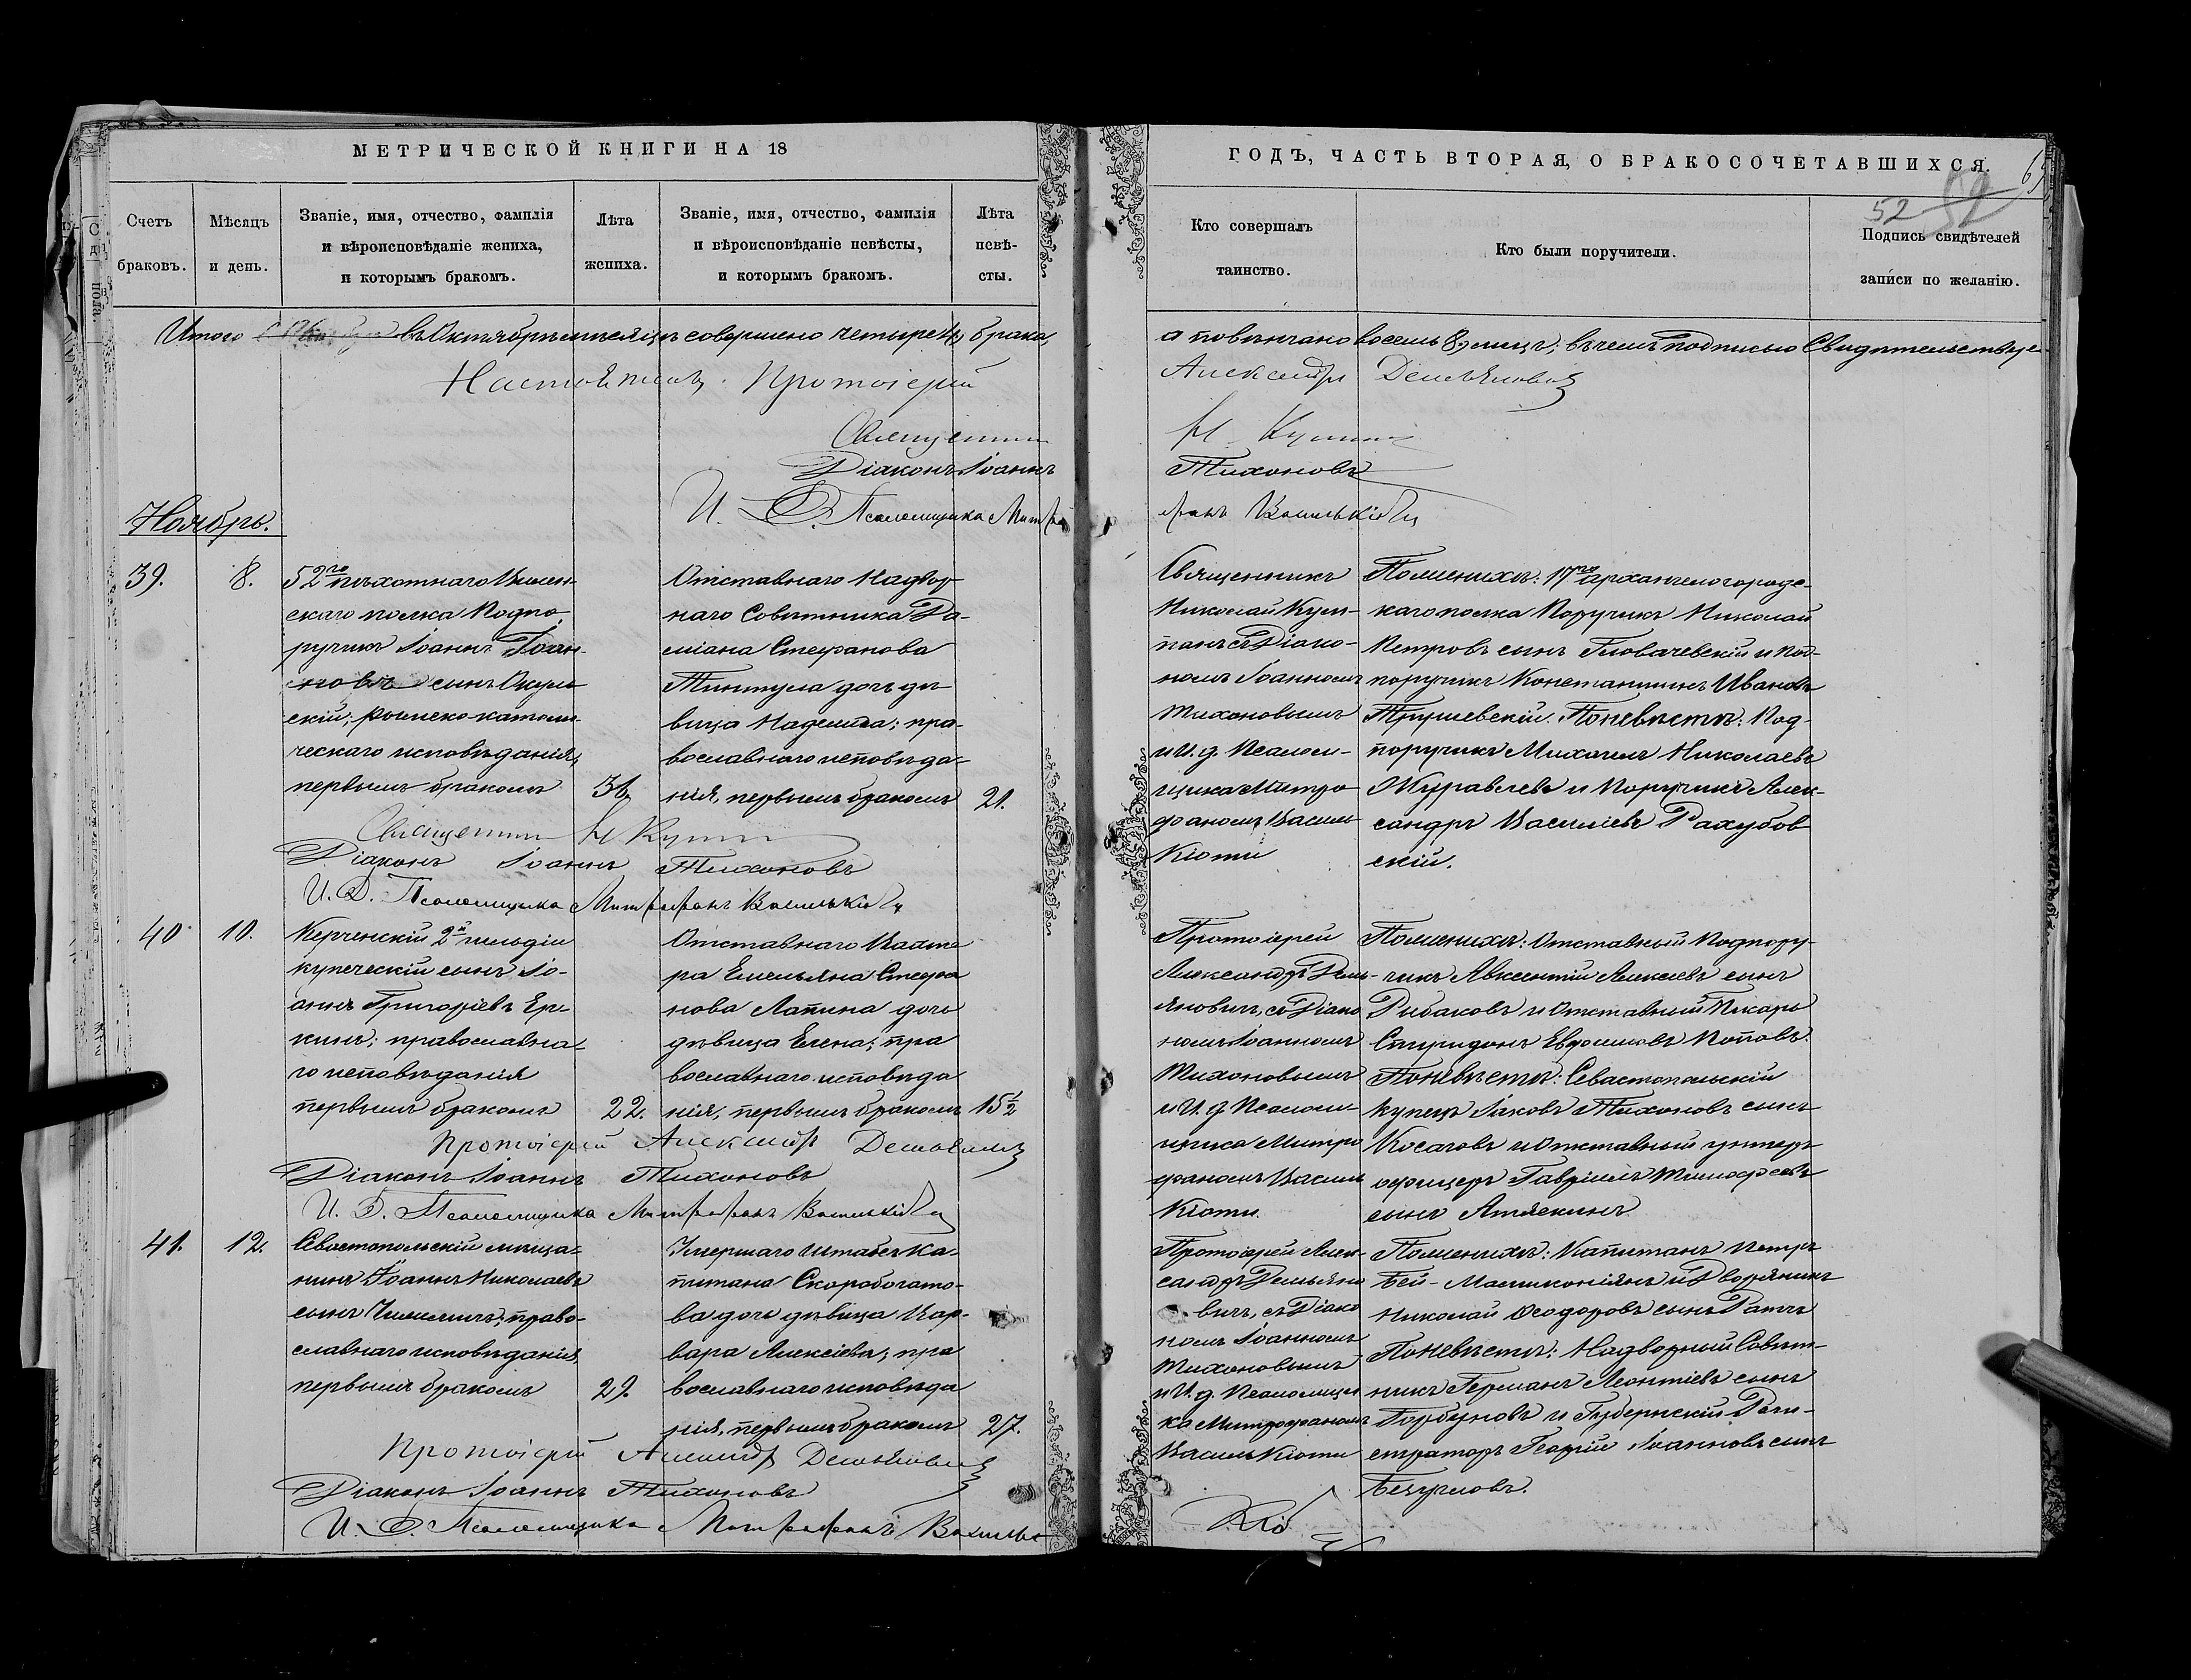 МЕТРИЧЕСКОЙ КНИГИ НА 18
Счетъ браковъ.
Мѣсяцъ и день.
Званіе, имя, отчество, фамилія
и вѣроисповѣданіе жениха,
и которымъ бракомъ.
Лѣта жениха.
Званіе, имя, отчество, фамилія
и вѣроисповѣданіе невѣсты,
и которымъ бракомъ.
Лѣта невѣ-
сты.
Итого въ Октябрѣ мѣсяцѣ совершено четыре 4, брака,
Настоятель Протоіерей
Священникъ
Діаконъ Іоаннъ
И. Д. Псаломщика Митро
Ноябрь.
39.
8.
52го пѣхотнаго Вилен-
скаго полка Подпо-
ручикъ Іоаннъ Іоан-
новъ сынъ
скій; римско-католи-
ческаго исповѣданія,
первымъ бракомъ
36
Отставнаго Надвор-
наго Совѣтника Да-
міана Стефанова
дочь дѣ-
вица Надежда; пра-
вославнаго исповѣда-
нія, первымъ бракомъ
21.
Священникъ Н Купч
Діаконъ Іоаннъ Тихоновъ
И. Д. Псаломщика Митрофанъ Василькіоти
40
10.
Керченскій 2й гильдіи
купеческій сынъ Іо-
аннъ Григоріевъ
кинъ; православна-
го исповѣданія
первымъ бракомъ
22.
Отставнаго Вахте
ра Емельяна Стефа
нова Лапина дочь
дѣвица Елена; пра
вославнаго исповѣда
нія, первымъ бракомъ
15½
Протоіерей Александръ Демьяновичъ
Діаконъ Іоаннъ Тихоновъ
И. Д. Псаломщика Митрофанъ Василькіоти
41.
12.
Севастопольскій мѣща-
нинъ Іоаннъ Николаевъ
сынъ право-
славнаго исповѣданія,
первымъ бракомъ
29.
Умершаго Штабсъ Ка-
питана Скоробогато-
ва дочь дѣвица Вар-
вара Алексіева; пра
вославнаго исповѣда
нія, первымъ бракомъ
27.
Протоіерей Александръ Демьяновичъ
Діаконъ Іоаннъ Тихоновъ
И. Д. Псаломщика Митрофанъ Василь
ГОДЪ, ЧАСТЬ ВТОРАЯ, О БРАКОСОЧЕТАВШИХСЯ.
52
Кто совершалъ таинство.
Кто были поручители.
Подпись свидѣтелей
записи по желанію.
а повѣнчано восемь 8, лицъ; въ чемъ подписью Свидѣтельствуе
Александръ Демьяновичъ
Н.
Тихоновъ
фанъ Василькіоти
Священникъ
Николай
съ Діако-
номъ Іоанномъ
Тихоновымъ
и И. д. Псалом-
щика Митро-
фаномъ Василь
Кіоти
По женихѣ: 17го Архангелогородс-
каго полка Поручикъ Николай
Петровъ сынъ Гловачевскій и Под-
поручикъ Константинъ Ивановъ
Трушевскій. По невѣстѣ: Под-
поручикъ Михаилъ Николаевъ
Журавлевъ и Поручикъ Алек-
сандръ Василіевъ Рахубов
скій.
Протоіерей
Александръ Демь-
яновичъ, съ Діако
номъ Іоанномъ
Тихоновымъ
и И. д. Псалом-
щика Митро
фаномъ Василь
Кіоти.
По женихѣ: Отставный Подпору-
чикъ Авксентій Алексіевъ сынъ
Рыбаковъ и Отставный Писарь
Спиридонъ Евфимовъ Поповъ.
По невѣстѣ: Севастопольскій
купецъ Іаковъ Тихоновъ сынъ
Косачовъ и Отставный унтеръ
офицеръ Гавріилъ Тимофеевъ
сынъ Атяскинъ
Протоіерей Алек-
сандръ Демьяно
вичъ, съ Діако
номъ Іоанномъ
Тихоновымъ
и И. д. Псаломщи
ка Митрофаномъ
Василькіоти
По женихѣ: Капитанъ Петръ
Бей- и Дворянинъ
Николай Ѳеодоровъ сынъ Ратчъ
По невѣстѣ: Надворный Совѣт-
никъ Германъ Леонтіевъ сынъ
Горбуновъ и Губернскій Реги-
страторъ Георгій Іоанновъ сынъ
Безугловъ.